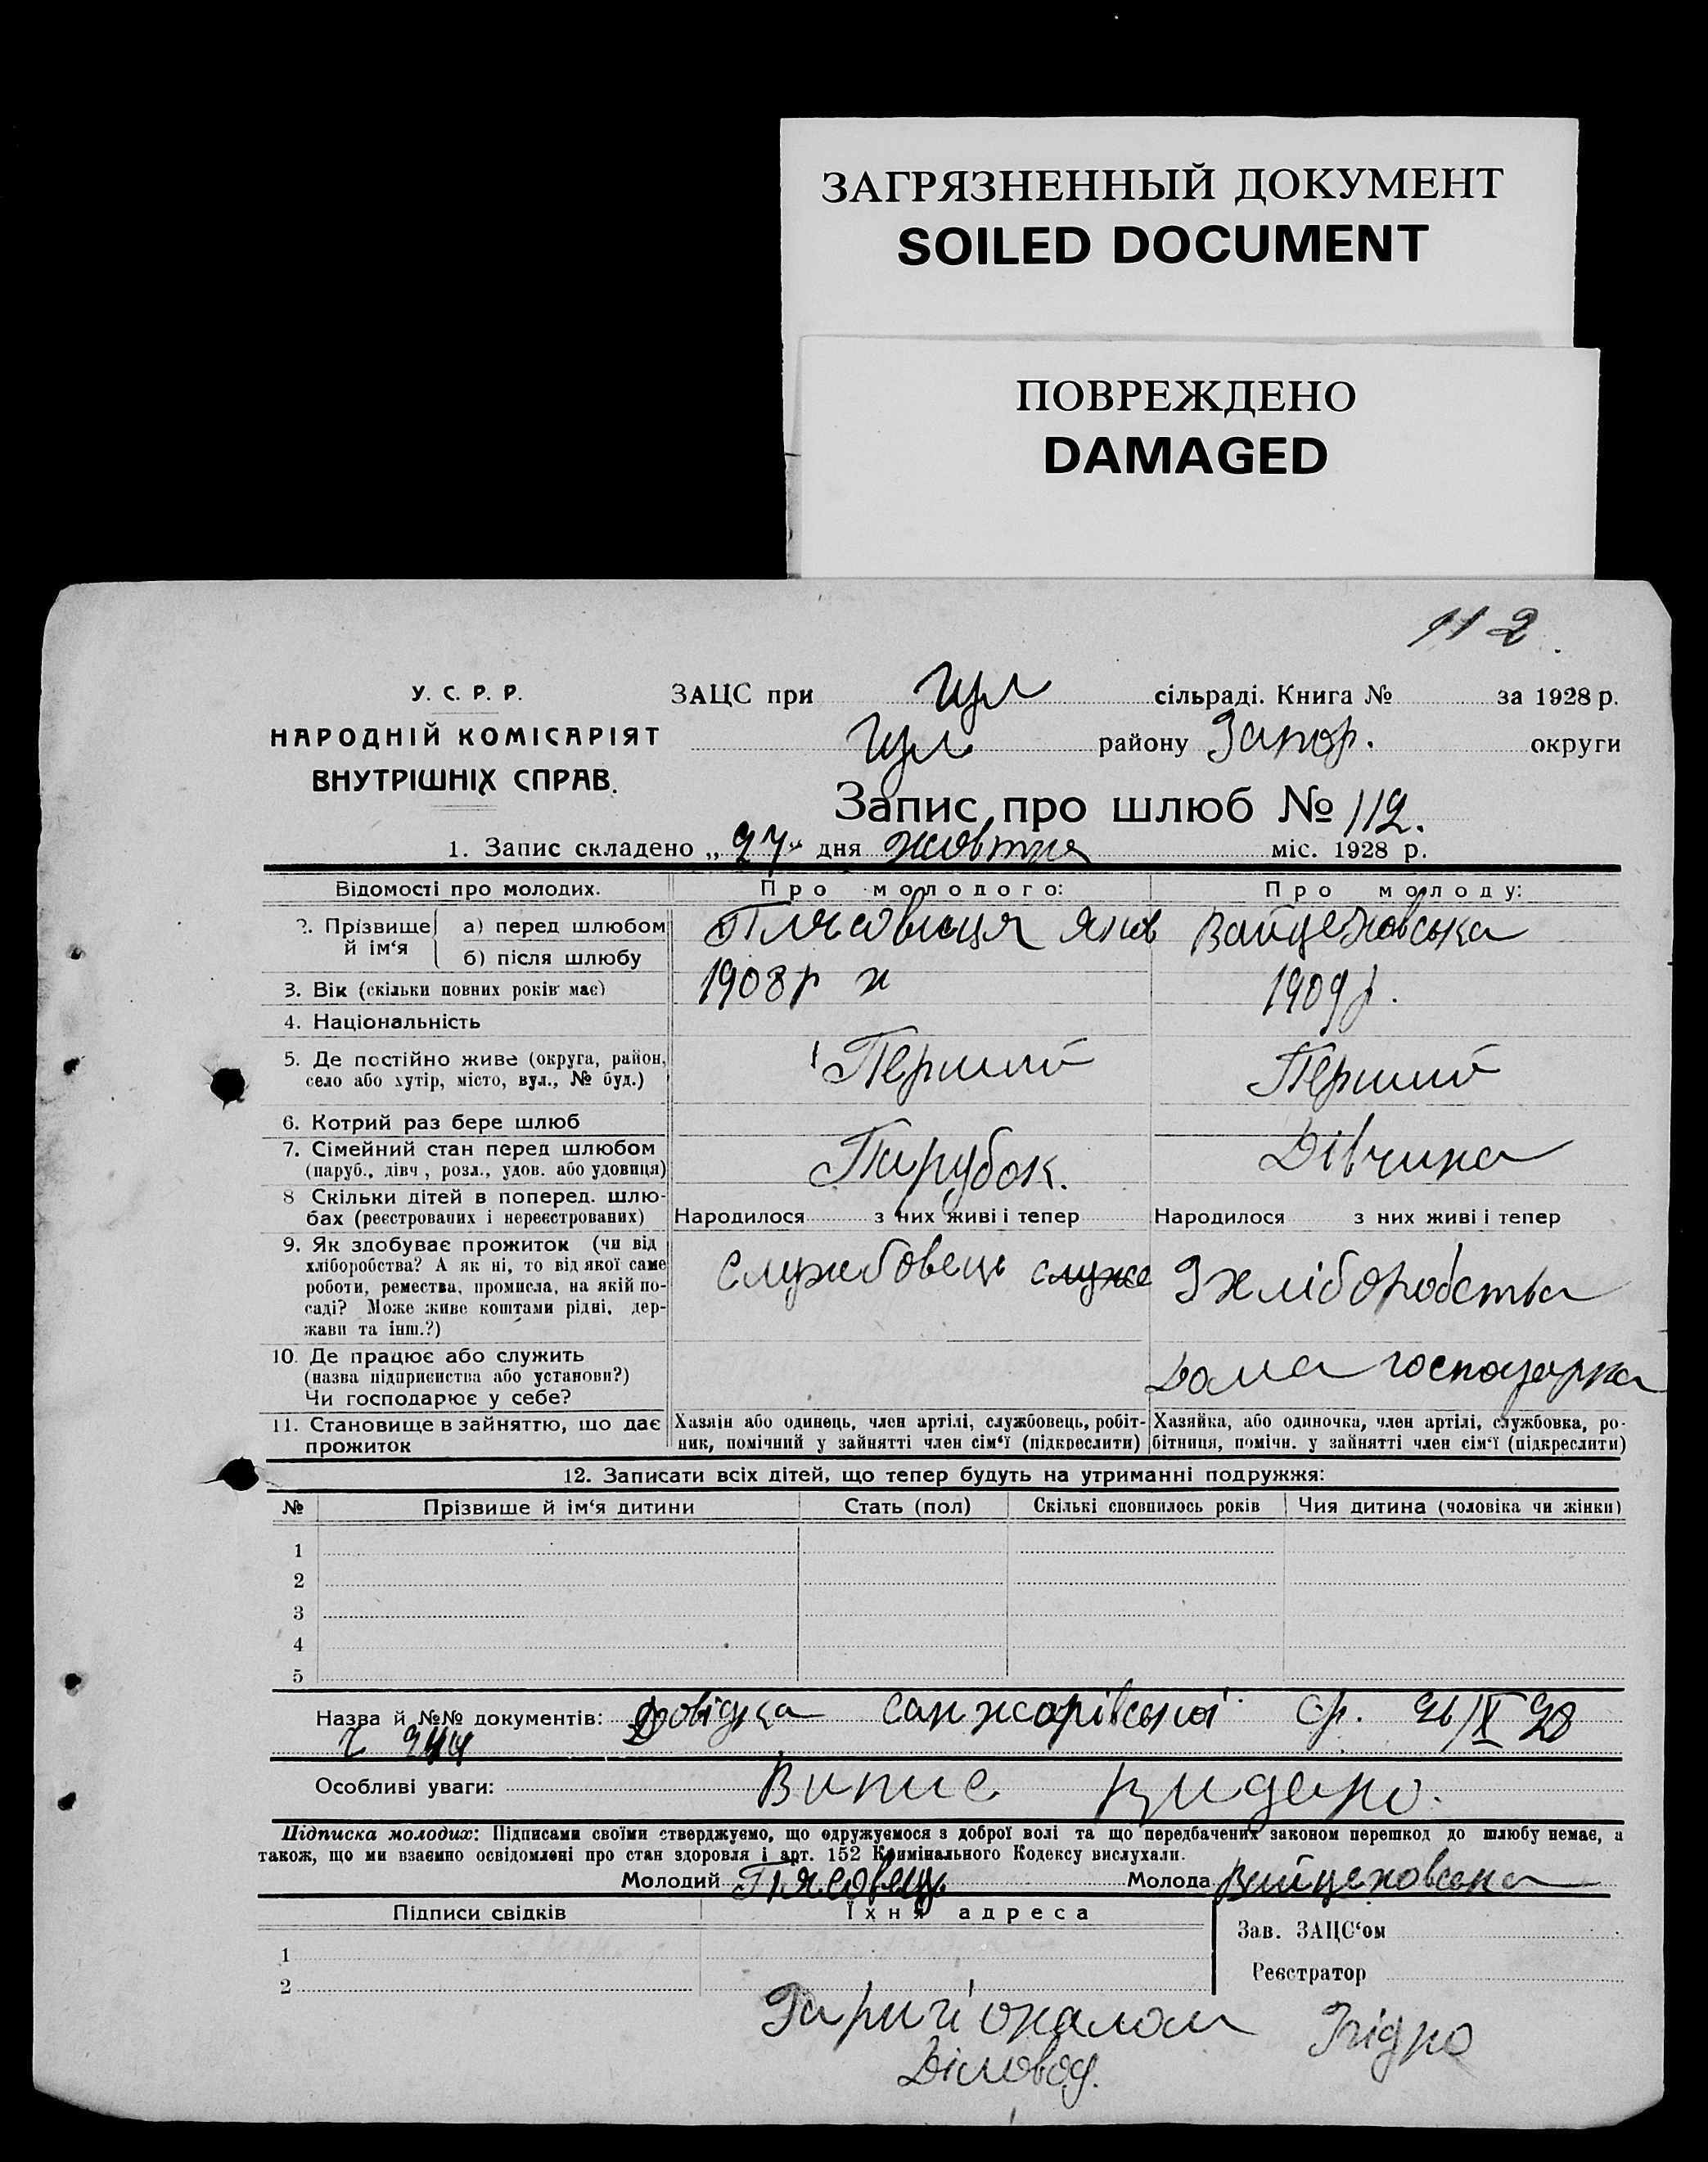 ЗАГРЯЗНЕННЫЙ ДОКУМЕНТ
SOILED DOCUMENT
ПОВРЕЖДЕНО
DAMAGED
112.
У. С. Р. Р.
НАРОДНІЙ КОМІСАРІЯТ
ВНУТРІШНІХ СПРАВ.
ЗАЦС при Гул сільраді. Книга № за 1928 р.
Гул району Запор. округи
Запис про шлюб № 112.
1. Запис складено „ 27 “ дня жовтня міс. 1928 р.
Відомості про молодих. Про молодого: Про молоду:
2. Прізвище й ім‘я а) перед шлюбом Яков Войцеховська
б) після шлюбу
3. Вік (скільки повних років має) 1908 р н 1909 р.
4. Національність
5. Де постійно живе (округа, район, село або хутір, місто, вул., № буд.) Перший Перший
6. Котрий раз бере шлюб
7. Сімейний стан перед шлюбом (паруб., дівч., розл., удов. або удовиця) Парубок. Дівчина
8 Скільки дітей в поперед. шлюбах (реєстрованих і нереєстрованих) Народилося з них живі і тепер Народилося з них живі і тепер
9. Як здобуває прожиток (чи від хліборобства? А як ні, то від якої саме роботи, ремества, промисла, на якій посаді? Може живе коштами рідні, держави та інш.?) Службовець служе З хліборобства
10. Де працює або служить (назва підприємства або установи?) Чи господарює у себе? Дома господарка
11. Становище в зайняттю, що дає прожиток Хазяін або одинець, член артілі, службовець, робітник, помічний у зайнятті член сім‘ї (підкреслити) Хазяйка, або одиночка, член артілі, службовка, робітниця, помічн. у зайнятті член сім‘ї (підкреслити)
12. Записати всіх дітей, що тепер будуть на утриманні подружжя:
№ Прізвише й ім‘я дитини Стать (пол) Скількі сповнилось років Чия дитина (чоловіка чи жінки)
1
2
3
4
5
Назва й №№ документів: Довідка Санжарівської ср. 26/X 28
244
Особливі уваги: Випис видано.
Підписка молодих: Підписами своїми стверджуємо, що одружуємося з доброї волі та що передбачених законом перешкод до шлюбу немає, а
також, що ми взаємно освідомлені про стан здоровля і арт. 152 Кримінального Кодексу вислухали.
Молодий Молода Войцеховська
Підписи свідків Їхня адреса
Зав. ЗАЦС‘ом
1
Реєстратор
2
З оригіналом Згідно
Діловод.